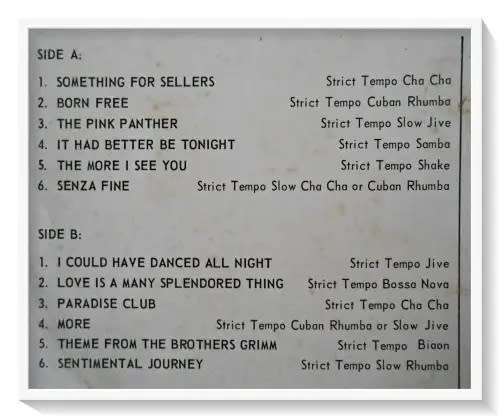 SIDE A:
1. SOMETHING FOR SELLERS Strict Tempo Cha Cha
2. BORN FREE Strict Tempo Cuban Rhumba
3. THE PINK PANTHER Strict Tempo Slow Jive
4. IT HAD BETTER BE TONIGHT Strict Tempo Samba
5. THE MORE I SEE YOU Strict Tempo Shake
6. SENZA FINE Strict Tempo Slow Cha Cha or Cuban Rhumba
SIDE B:
1. I COULD HAVE DANCED ALL NIGHT Strict Tempo Jive
2. LOVE IS A MANY SPLENDORED THING Strict Tempo Bossa Nova
3. PARADISE CLUB Strict Tempo Cha Cha
4. MORE Strict Tempo Cuban Rhumba or Slow Jive
5. THEME FROM THE BROTHERS GRIMM Strict Tempo Biaon
6. SENTIMENTAL JOURNEY Strict Tempo Slow Rhumba